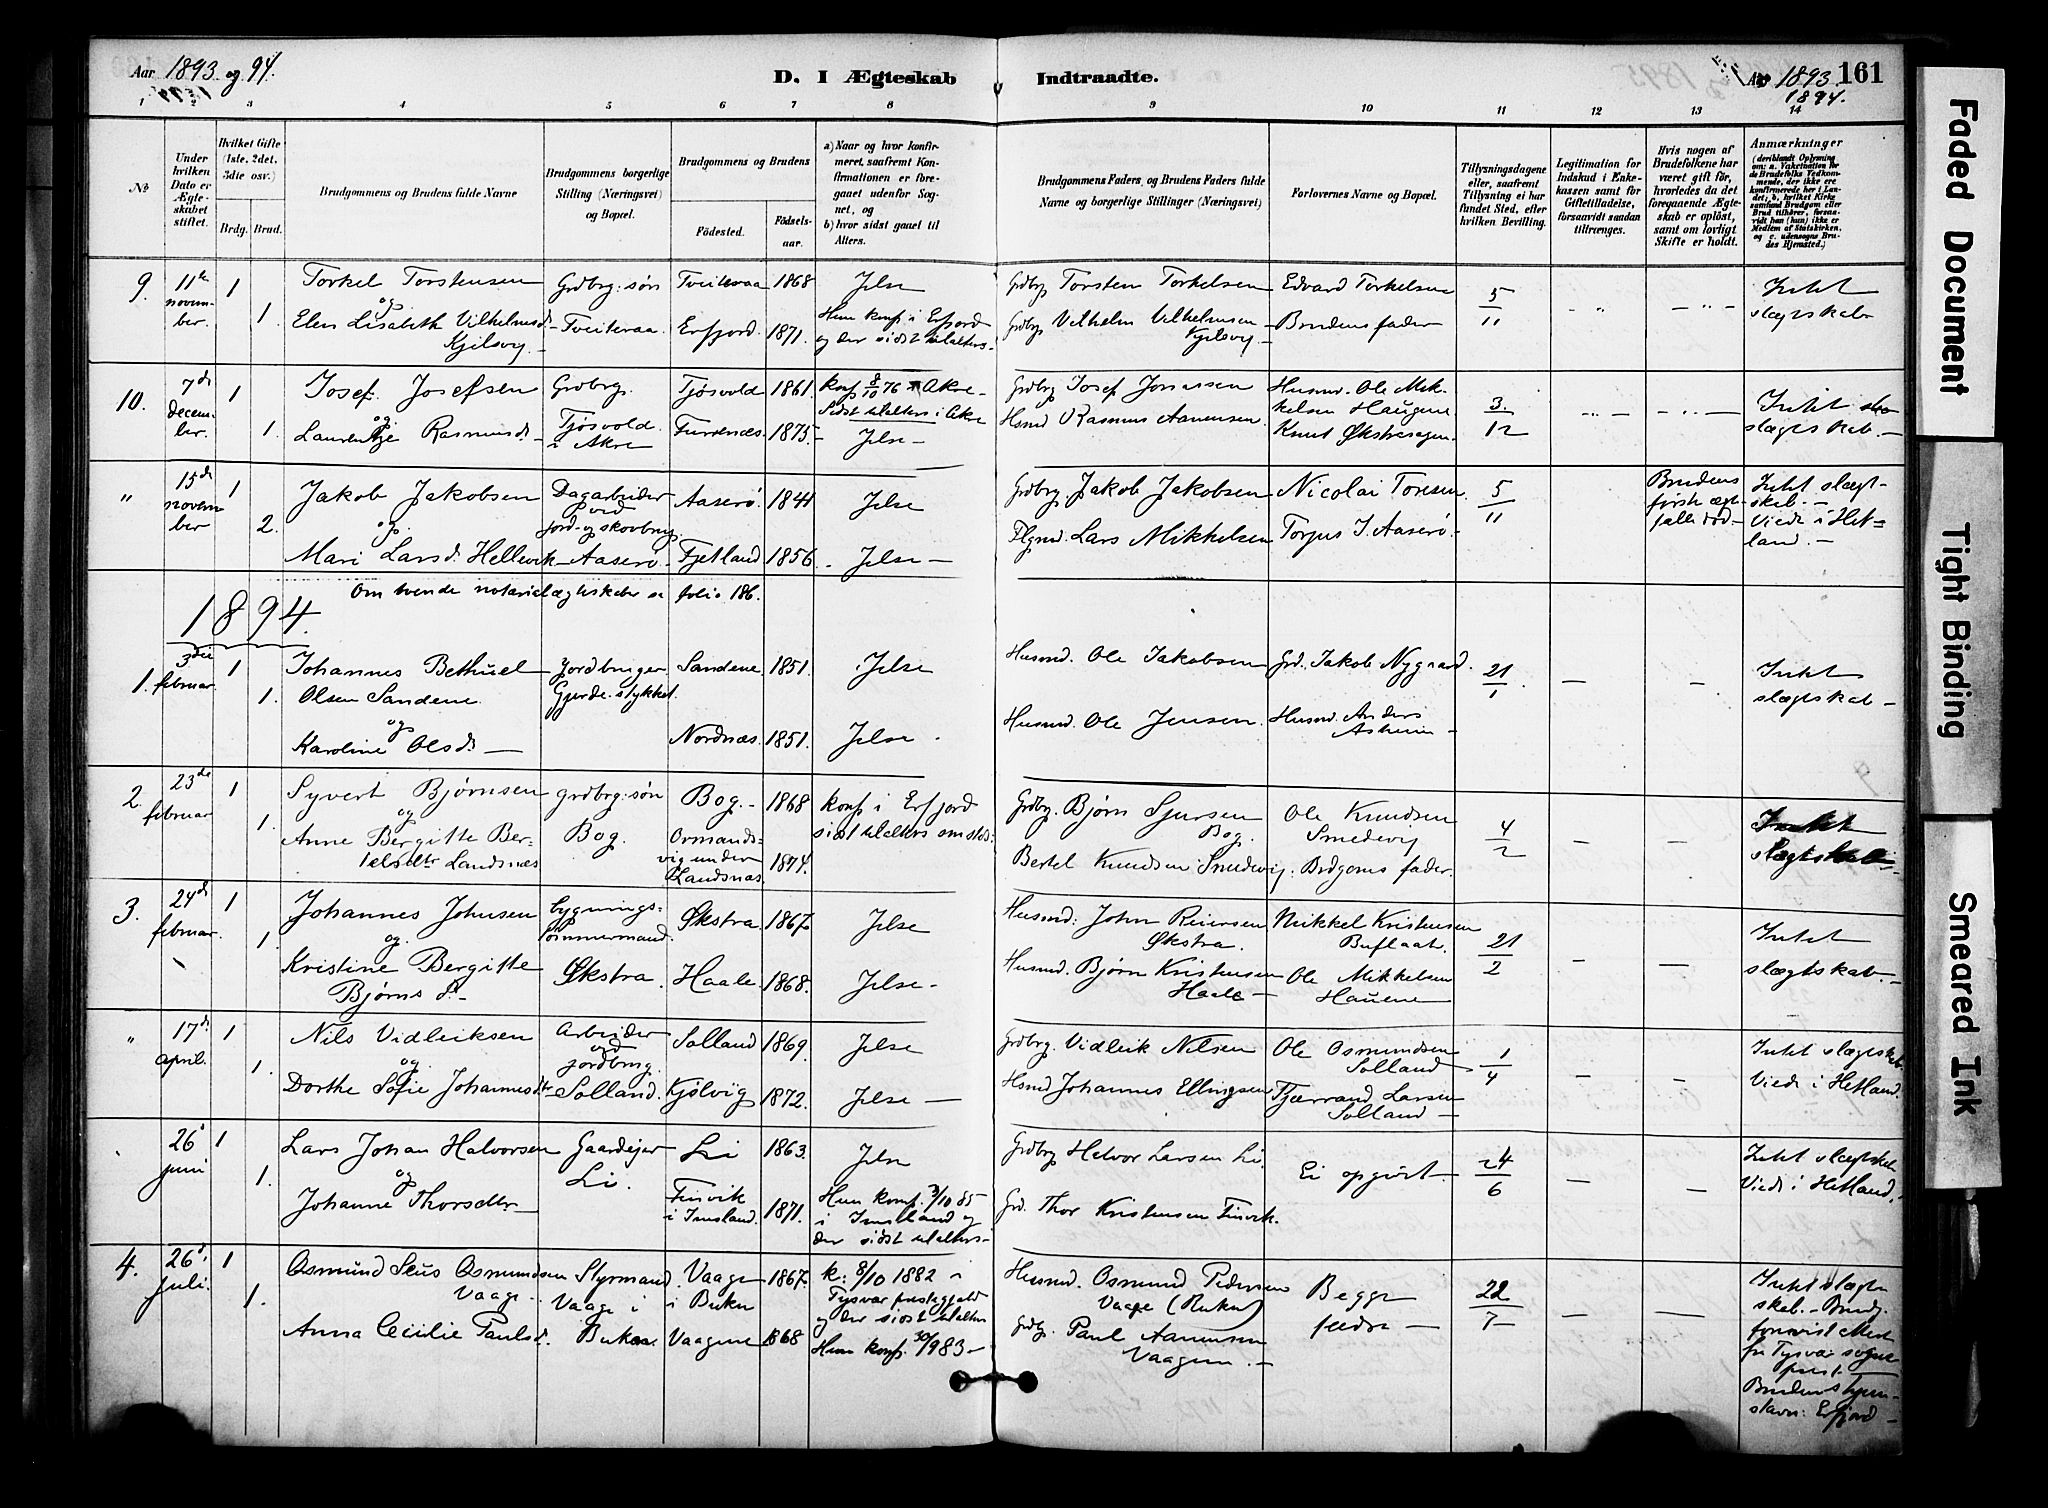 Aar 1893 og 94.
D. I Ægteskab Indtraadte.
Aar 1893 161
1894.
1 3 4 5 6 7 8 9 10 11 12 13 14
No
Under hvilken Dato er Ægteskabet stiftet.
Hvilket Gifte (1ste, 2det, 3die osv.)
Brdg. Brud.
Brudgommens og Brudens fulde Navne
Brudgommens borgerlige Stilling (Næringsvei) og Bopæl.
Brudgommens og Brudens
Födested.
Födselsaar.
a) Naar og hvor konfirmeret, saafremt Konfirmationen er foregaaet udenfor Sognet, og
b) hvor sidst gaaet til Alters.
Brudgommens Faders og Brudens Faders fulde Navne og borgerlige Stillinger (Næringsvei)
Forlovernes Navne og Bopæl.
Tillysningsdagene eller, saafremt Tillysning ei har fundet Sted, efter hvilken Bevilling.
Legitimation for Indskud i Enkekassen samt for Giftetilladelse, forsaavidt saadan tiltrænges.
Hvis nogen af Brudefolkene har været gift för, hvorledes da det foregaaende Ægteskab er oplöst, samt om lovligt Skifte er holdt.
Anmærkninger
9. 11te november. 1 1.
Torkel Torstensen
og
Elen Lisabeth Vilhelmsd.
Kjilsvig
Grdbrg: søn
Tveiteraa.
Tveiteraa 1868
Erfjord. 1871.
Jelse
Hun konf. i Erfjord
og der sidst til alters.
Grdbrg Torsten Torkelsen
Grdbrg. Vilhelm Vilhelmsen
Kjilsvig
Edvard Torkelsen
Brudens fader
5/11
Intet
slægtskab
10. 7de december. 1 1.
Josef Josefsen
og
Laurentze Rasmusd.
Grdbrg.
Tjösvold
i Akre
Tjösvold 1861
Furenæs. 1875.
konf 8/10 76 i Akre
Sidst til alters i Akre
Jelse
Grdbrg Josef Jonassen
Hsmd Rasmus Aanensen
Husmd. Ole Mikkelsen Haugene
Knut Økstrasagen
3/12
Intet
slægtskab.
" 15de november 1 2.
Jakob Jakobsen
og
Mari Larsd. Hellevik
Dagarbeider
ved
jord- og skovbrug
Aaserø
Aaserö 1841
Fjetland 1856
Jelse
Jelse
Grdbrg. Jakob Jakobsen
Lars Mikkelsen
Nicolai Toresen
Torjus J. Aaserö
5/11
Brudens
første ægtefælle död
Intet slægtskab.
Viede i Hetland.
Om tvende notarielægteskaber se folio 186.
1894.
1. 3die februar. 1 1.
Johannes Bethuel
Olsen Sandene
og
Karoline Olsd.
Jordbruger
Gjerde-stykket.
Sandene. 1851.
Nordnæs. 1851.
Jelse
Jelse
Husmd. Ole Jakobsen
Husmd. Ole Jensen
Grd. Jakob Nygaard.
Husmd. Anders
Asheim
21/1
Intet
slægtskab
2. 23de februar 1 1.
Syvert Bjørnsen
og
Anne Bergitte Bertelsdtr Landsnæs
grdbrg: søn
Bog.
Bog. 1868
Ormandsvig under
Landsnæs. 1874.
konf i Erfjord
sidst til alters smsteds.
Grdbrg. Bjørn Sjursen
Bog.
Bertel Knudsen Smedevig
Ole Knudsen
Smedevig
Brdgoms fader.
4/2
Intet
slægtskab
3. 24de februar. 1 1.
Johannes Johnsen
og
Kristine Bergitte
Bjørnsd.
bygningstömmermand.
Økstra.
Økstra 1867
Haale 1868.
Jelse
Jelse
Husmd: John Reiersen
Økstra.
Husmd. Bjørn Kristensen
Haale
Mikkel Kristensen
Buflaat.
Ole Mikkelsen
Hauene
21/2
Intet
slægtskab.
" 17de april. 1 1.
Nils Vidleiksen
og
Dorthe Sofie Johannesdtr
Arbeider
ved
jordbrug.
Solland.
Solland 1869
Kjölvig 1872.
Jelse
Jelse
Grdbrg. Vidleik Nilsen
Hsmd Johannes Ellingsen
Ole Osmundsen
Solland
Tjærrand Larsen
Solland
1/4
Intet slægtskab.
Viede i Hetland.
26 juni 1 1.
Lars Johan Halvorsen
og
Johanne Thorsdtr
Gaardejer
Li.
Li 1863.
Finvik
i Imsland. 1871.
Jelse
Hun konf. 3/10 85
i Imsland og
der sidst til alters
Grdbrg Halvor Larsen Li.
Grd. Thor Kristensen Finvik.
Ei opgivet.
24/6
Intet slægtskab
Viede i Hetland.
4. 26de juli. 1 1.
Osmund Osmundsen
Vaage
Anna Cecilie Paulsd.
Styrmand.
Vaage i
Buken
Vaage
i Buken 1867.
Vaagene 1868
k: 8/10 1882 i
Tysvær præstegjeld
og der sidst til alters
Hun konf. 30/9 83
Husmd. Osmund Pedersen
Vaage (Buken)
Grdbrg. Paul Aanensen
Vaagene.
Begge
fædre
22/7
Intet slægtskab. Brudg.
forevist attest
fra Tysvær sogneprest.
Brudens hjemstavn: Erfjord
Faded Document
Tight Binding
Smeared Ink